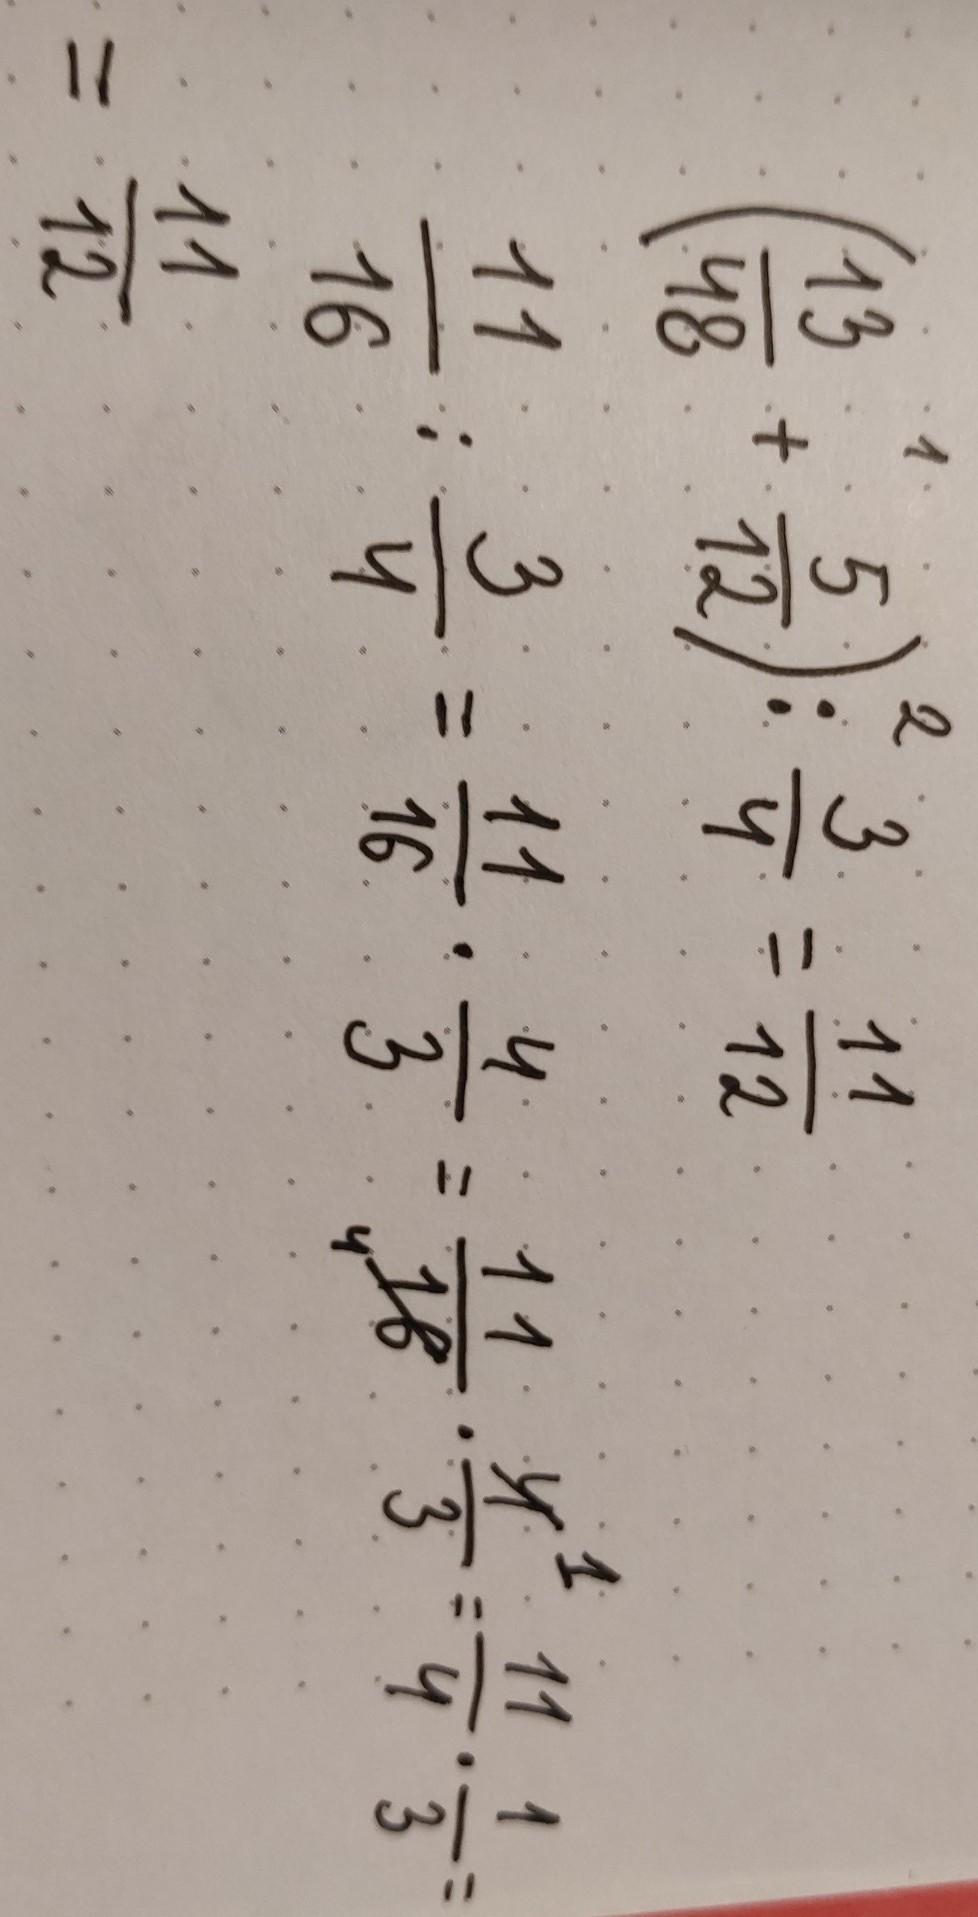 1 2
(13/48 + 5/12) : 3/4 = 11/12
11/16 : 3/4 = 11/16 · 4/3 = 11/16 4 · 4/3 1 = 11/4 · 1/3 =
= 11/12